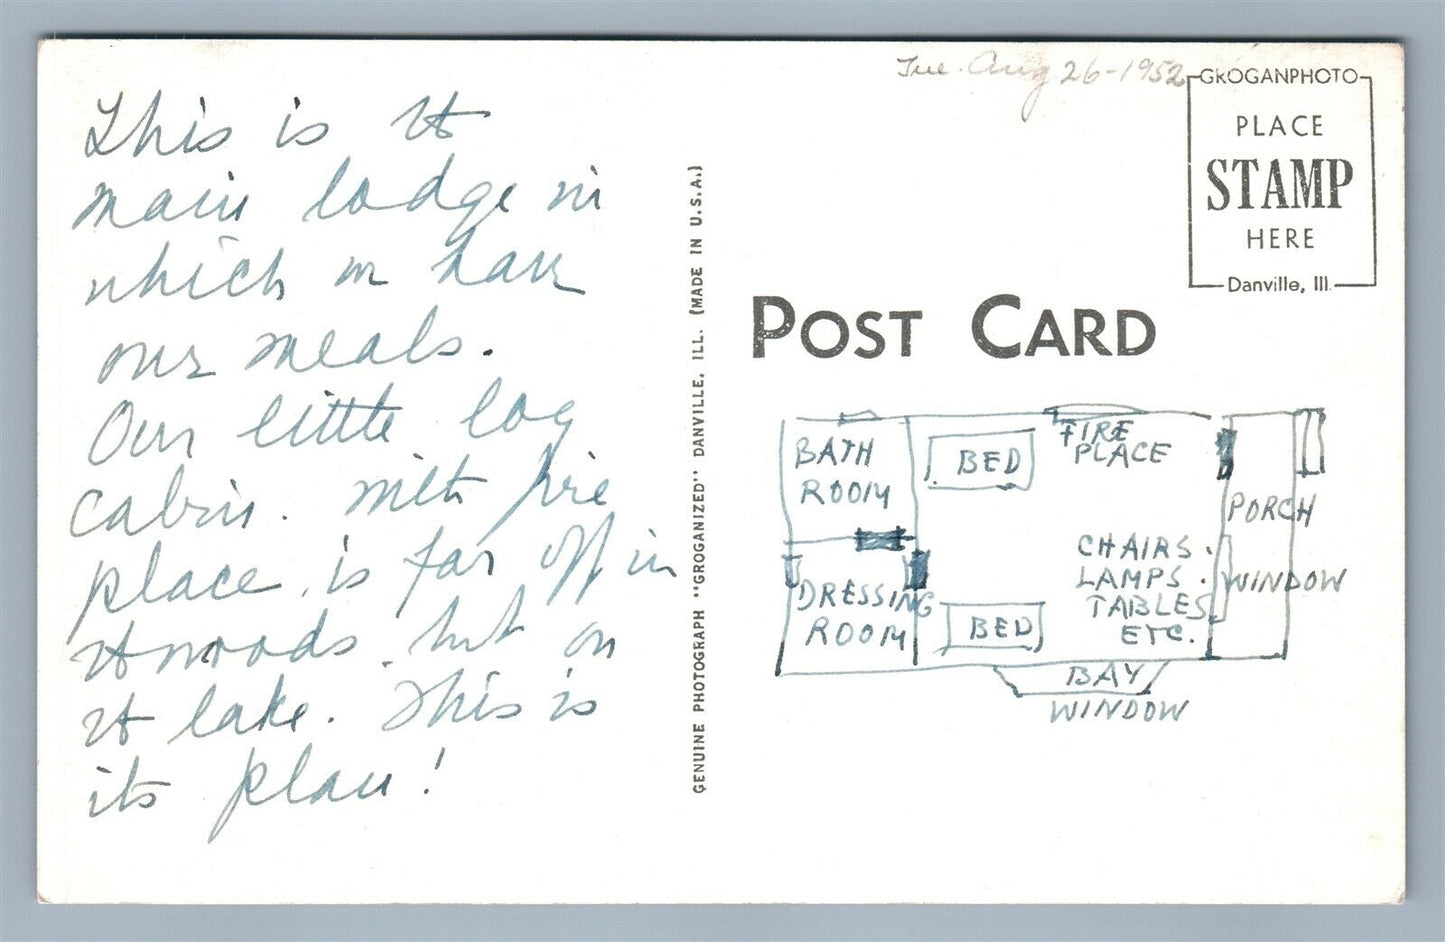 This is the
main lodge in
which we have
our meals.
Our little log
cabin. with fire
place, is far off in
the woods. but on
the lake. This is
its plan!
GENUINE PHOTOGRAPH "GROGANIZED" DANVILLE, ILL. (MADE IN U.S.A.)
Tue. Aug 26-1952
GROGANPHOTO
PLACE
STAMP
HERE
Danville, Ill.
POST CARD
BATH
ROOM
BED
FIRE
PLACE
PORCH
CHAIRS.
LAMPS.
TABLES
ETC.
WINDOW
DRESSING
ROOM
BED
BAY
WINDOW